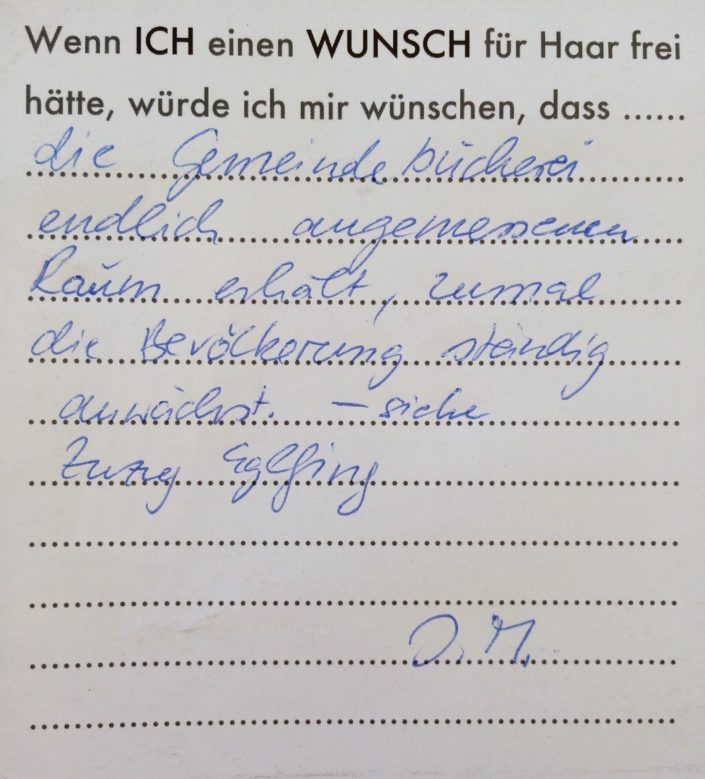 Wenn ICH einen WUNSCH für Haar frei
hätte, würde ich mir wünschen, dass ......
die Gemeindebücherei
endlich angemessenen
Raum erhält, zumal
die Bevölkerung ständig
anwächst. – siehe
Zuzug Eglfing
D. M.